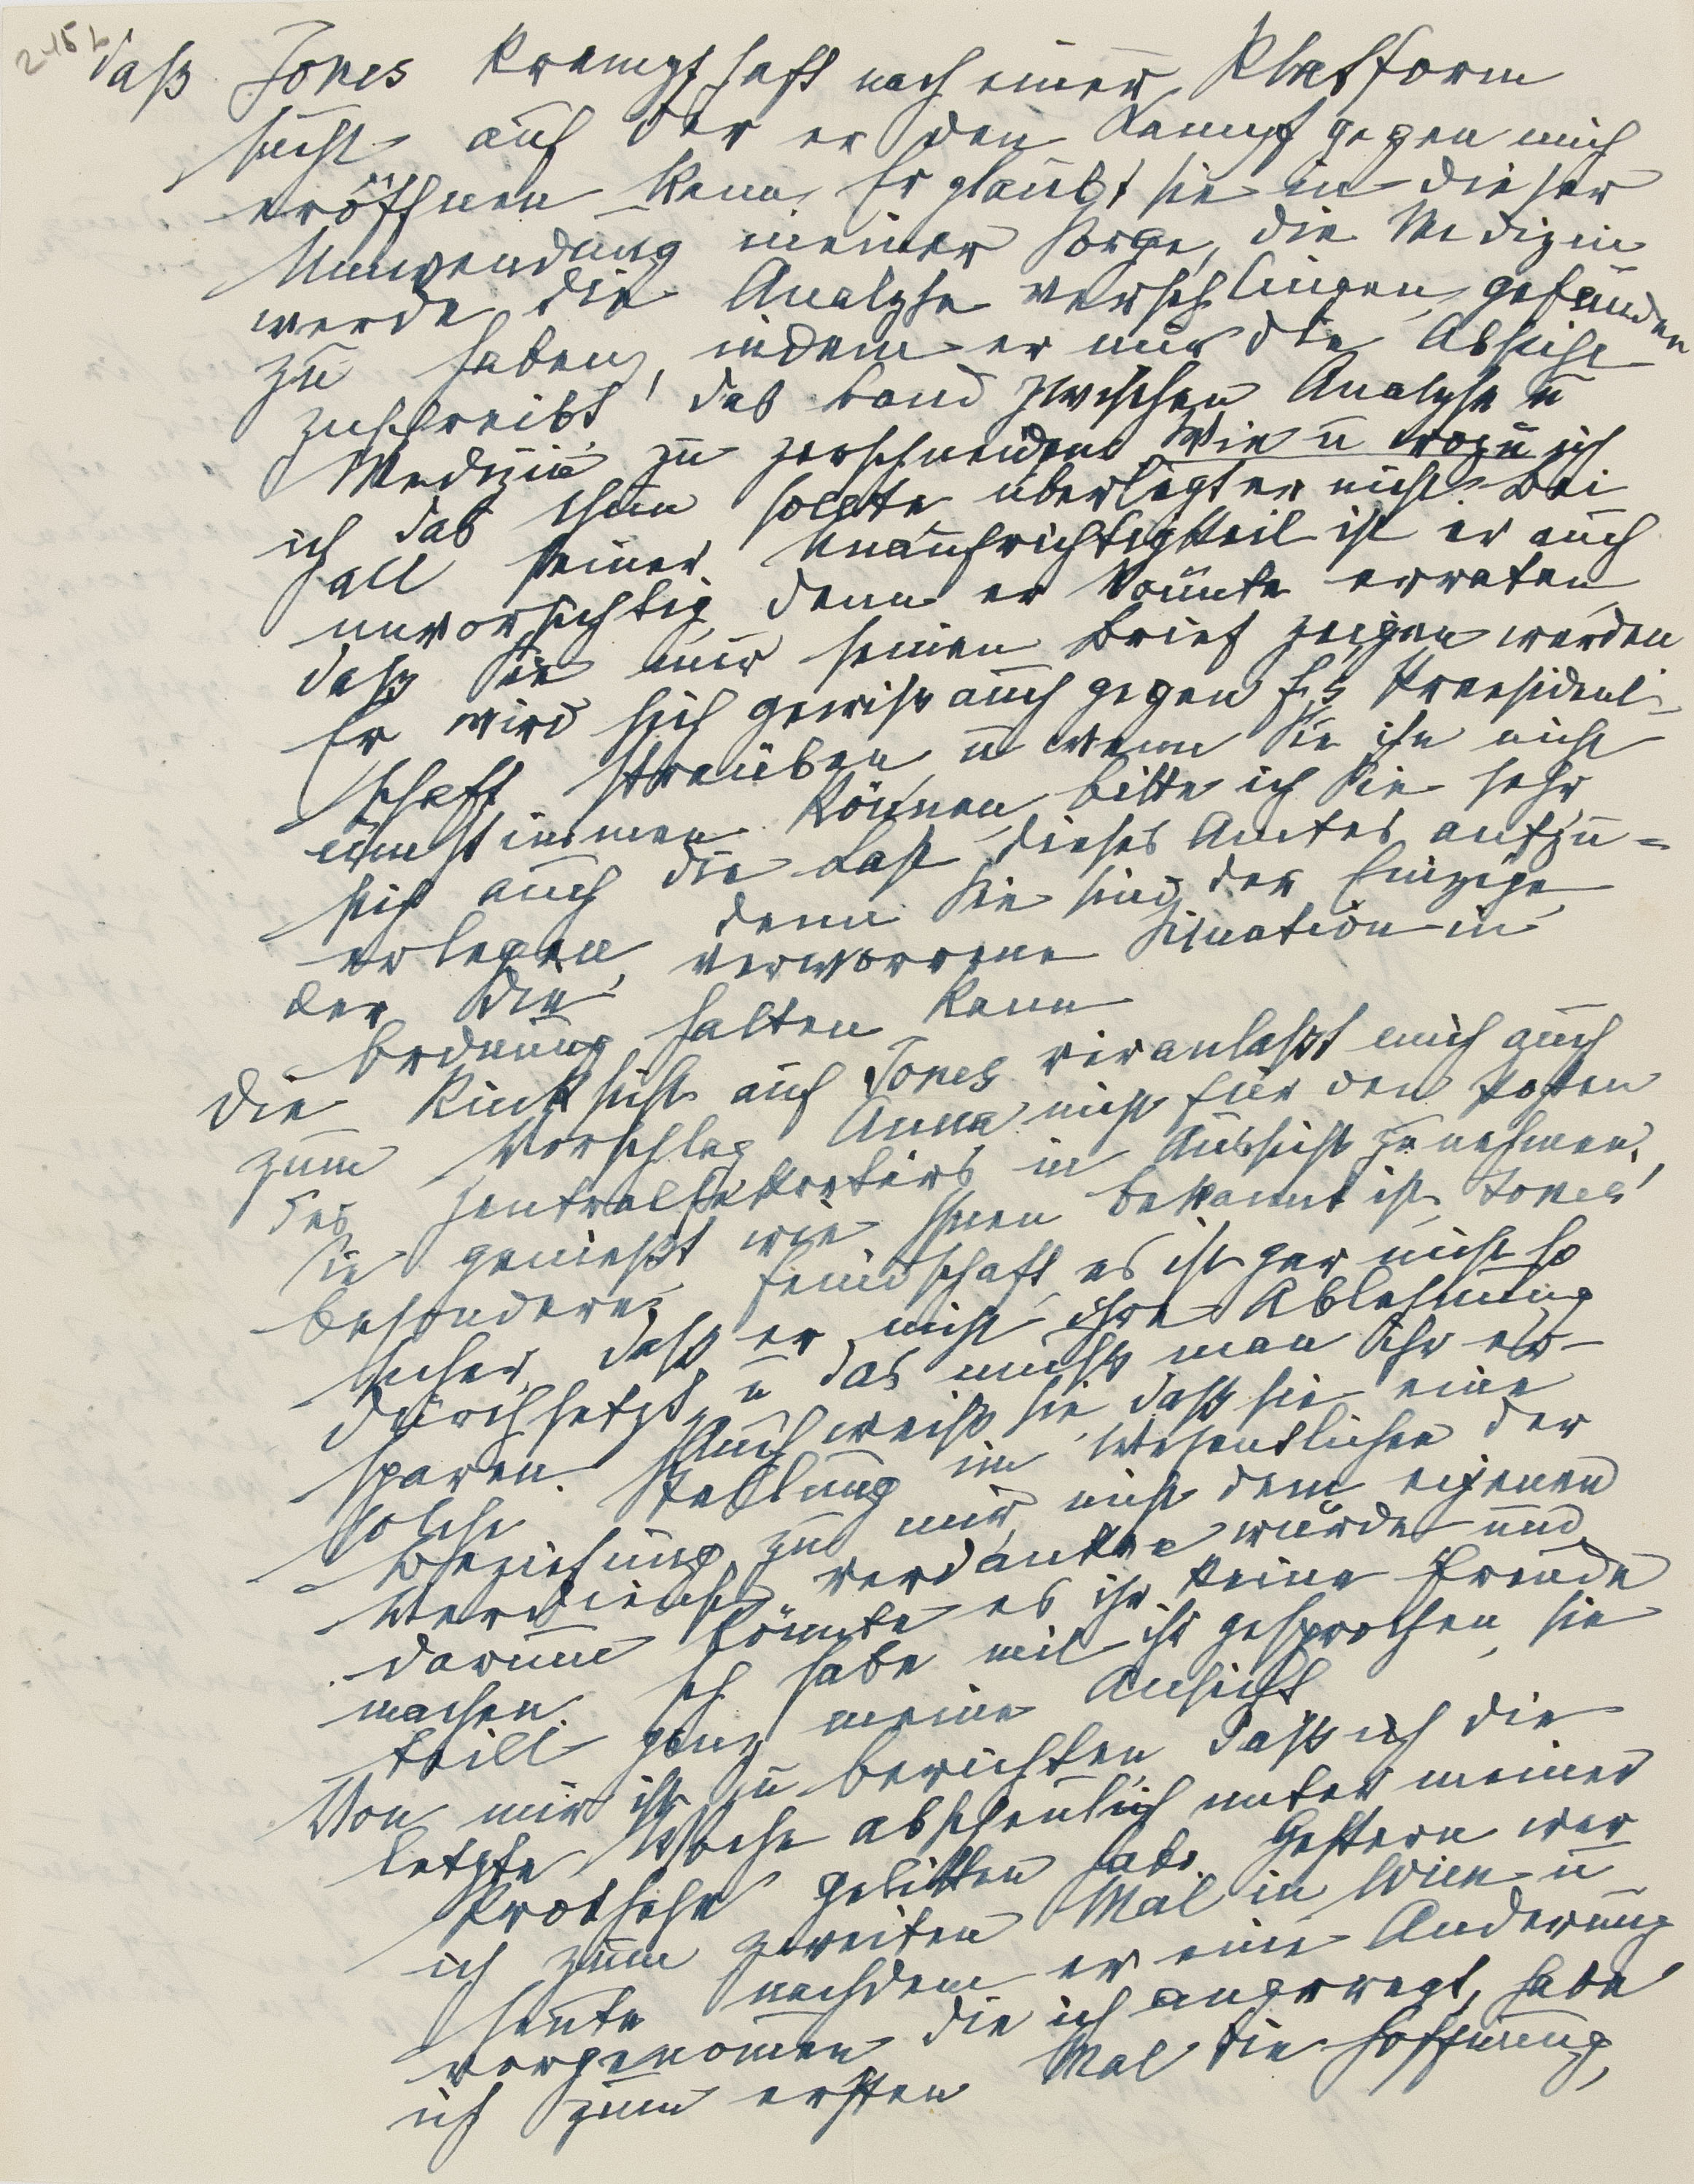 245 b
daß Jones krampfhaft nach einer Plattform
sucht auf der er den Kampf gegen mich
eröffnen kann. Er glaubt sie in dieser
Umwendung meiner Sorge, die Medizin
werde die Analyse verschlingen, gefunden
zu haben, indem er mir die Absicht
zuschreibt, das Band zwischen Analyse u
Medizin zu zerschneiden. Wie u wozu ich
ich das thun sollte, überlegt er nicht. Bei
all seiner Unaufrichtigkeit ist er auch
unvorsichtig, denn er könnte erraten,
daß Sie mir seinen Brief zeigen werden
Er wird sich gewiß auch gegen F.s Praesident-
schaft sträuben, u wenn Sie ihn nicht
umstimmen können, bitte ich Sie sehr
sich auch die Last dieses Amtes aufzu=
erlegen, denn Sie sind der Einzige,
der die verworrene Situation in
Ordnung halten kann
Die Rücksicht auf Jones veranlaßt mich auch
zum Vorschlag Anna nicht für den Posten
des Zentralsekretärs in Aussicht zu nehmen.
Sie genießt wie Ihnen bekannt ist, Jones'
besondere Feindschaft, es ist gar nicht so
sicher, daß er nicht ihre Ablehnung
durchsetzt, u das müßte man ihr er-
sparen. Auch weiß sie daß sie eine
solche Stellung im Wesentlichen der
Beziehung zu mir, nicht dem eigenen
Verdienst verdanken würde und
darum könnte es ihr keine Freude
machen. Ich habe mit ihr gesprochen, sie
teilt ganz meine Ansicht
Von mir ist zu berichten, daß ich die
letzte Woche abscheulich unter meiner
Prothese gelitten habe. Gestern war
ich zum zweiten Mal in Wien u
heute nachdem er eine Änderung
vorgenommen die ich angeregt, habe
ich zum ersten Mal die Hoffnung,